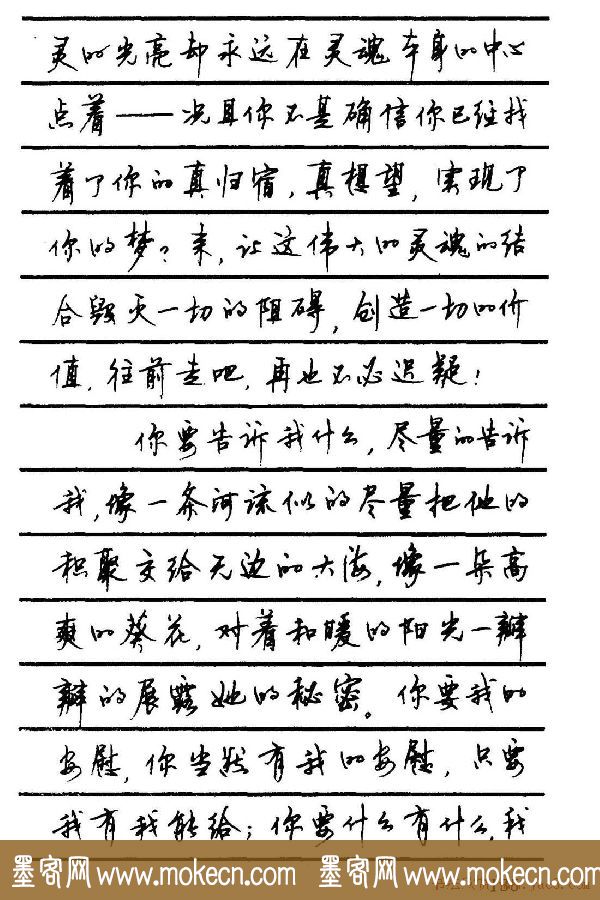 灵的光亮却永远在灵魂本身的中心
点着——况且你不甚确信你已经找
着了你的真归宿，真想望，实现了
你的梦？来，让这伟大的灵魂的结
合毁灭一切的阻碍，创造一切的价
值，往前走吧，再也不必迟疑！
你要告诉我什么，尽量的告诉
我，像一条河流似的尽量把他的
积聚交给无边的大海，像一朵高
爽的葵花，对着和暖的阳光一瓣
瓣的展露她的秘密。你要我的
安慰，你当然有我的安慰，只要
我有我能给；你要什么有什么，我
墨客网 www.mokecn.com 墨客网 www.mokecn.com